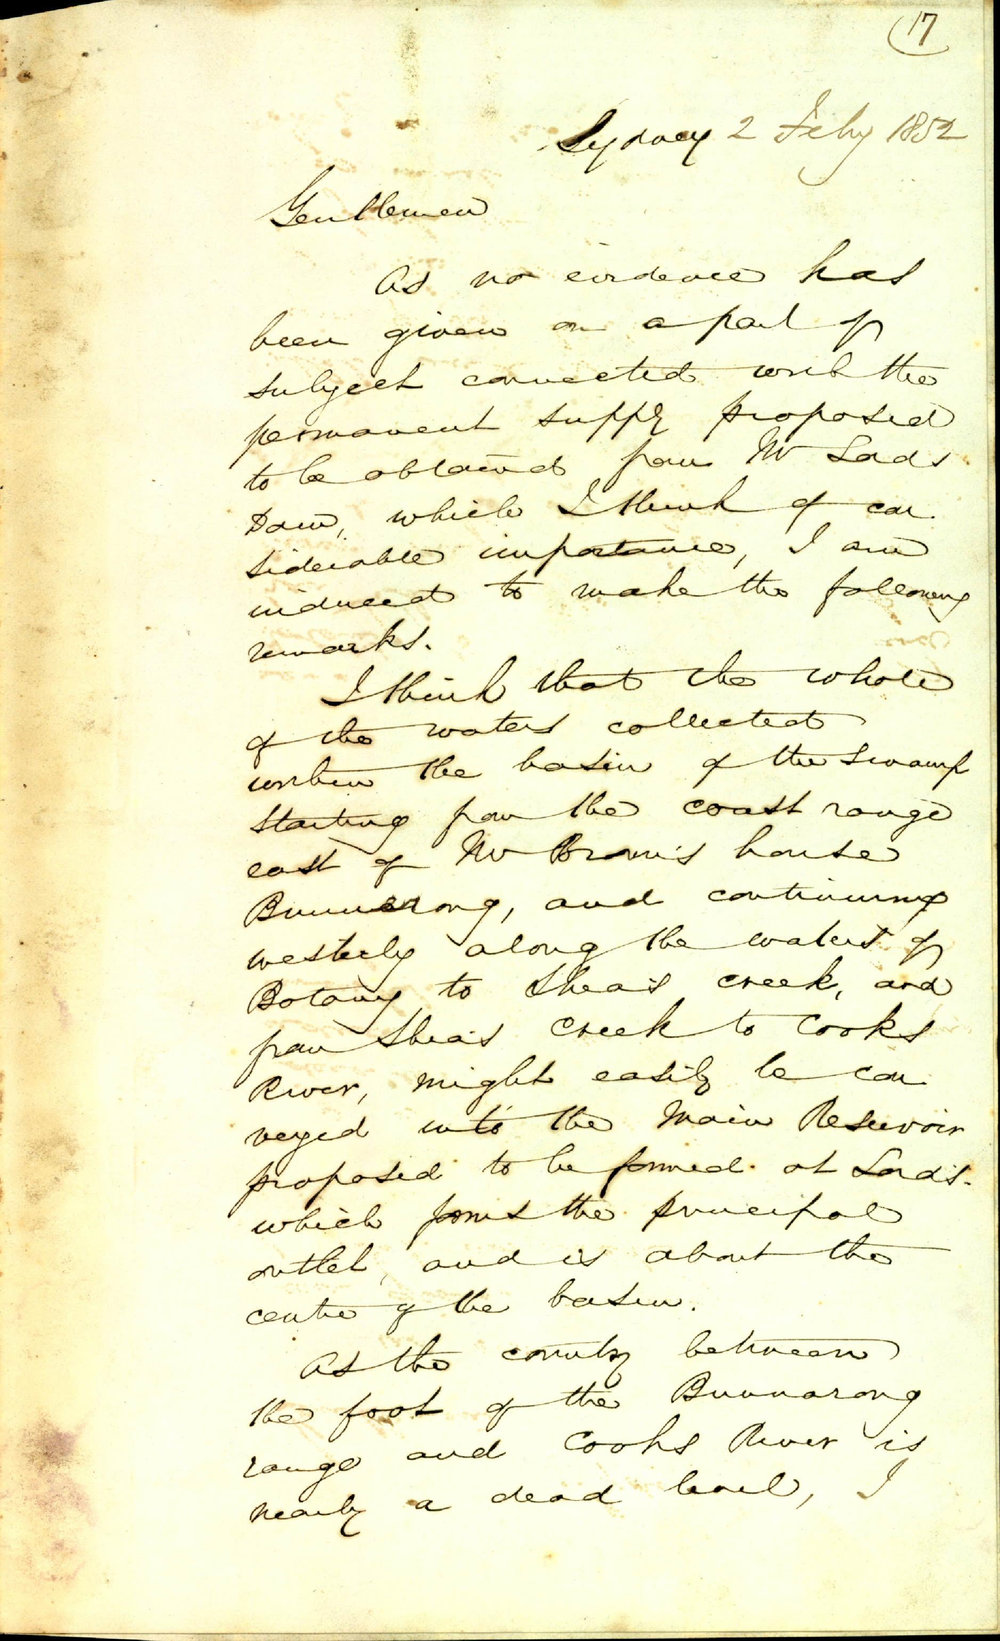 17
Sydney 2 Feby 1852
Gentlemen
As no evidence has
been given on a part of
subject connected with the
permanent supply proposed
to be obtained from Mr Lords
Dam, which I think of con
siderable importance, I am
induced to make the following
remarks.
I think that the whole
of the waters collected
within the basin of the Swamp
starting from the coast range
east of Mr Brown's house
Bunnerong, and continuing
westerly along the waters of
Botany to Shea's creek, and
from Shea's Creek to Cooks
River, might easily be con
veyed into the Main Reservoir
proposed to be formed at Lord's.
which forms the principal
outlet, and is about the
centre of the basin.
As the country between
the foot of the Bunnarong
range and Cooks River is
nearly a dead level, I